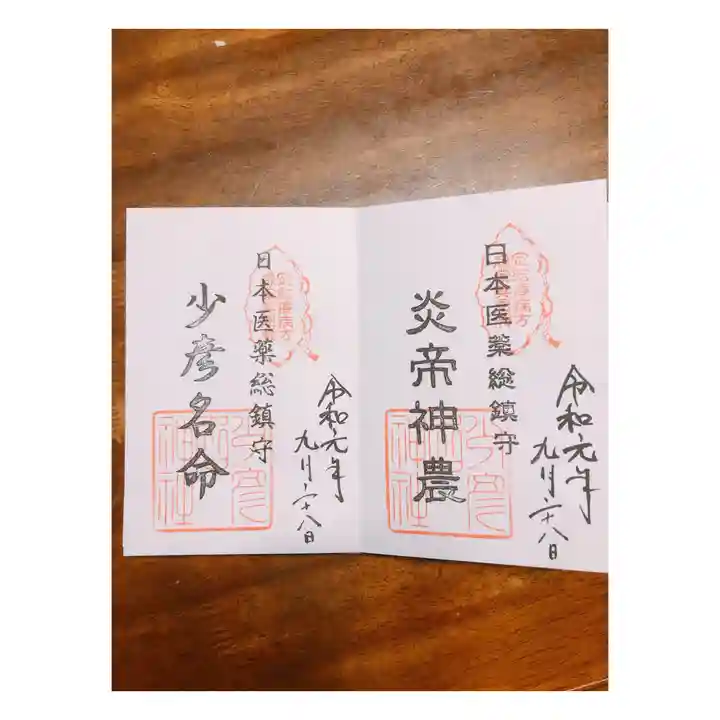 令和元年
九月二十八日
日本医薬総鎮守
炎帝神農
少彦神社
令和元年
九月二十八日
日本医薬総鎮守
少彦名命
少彦神社